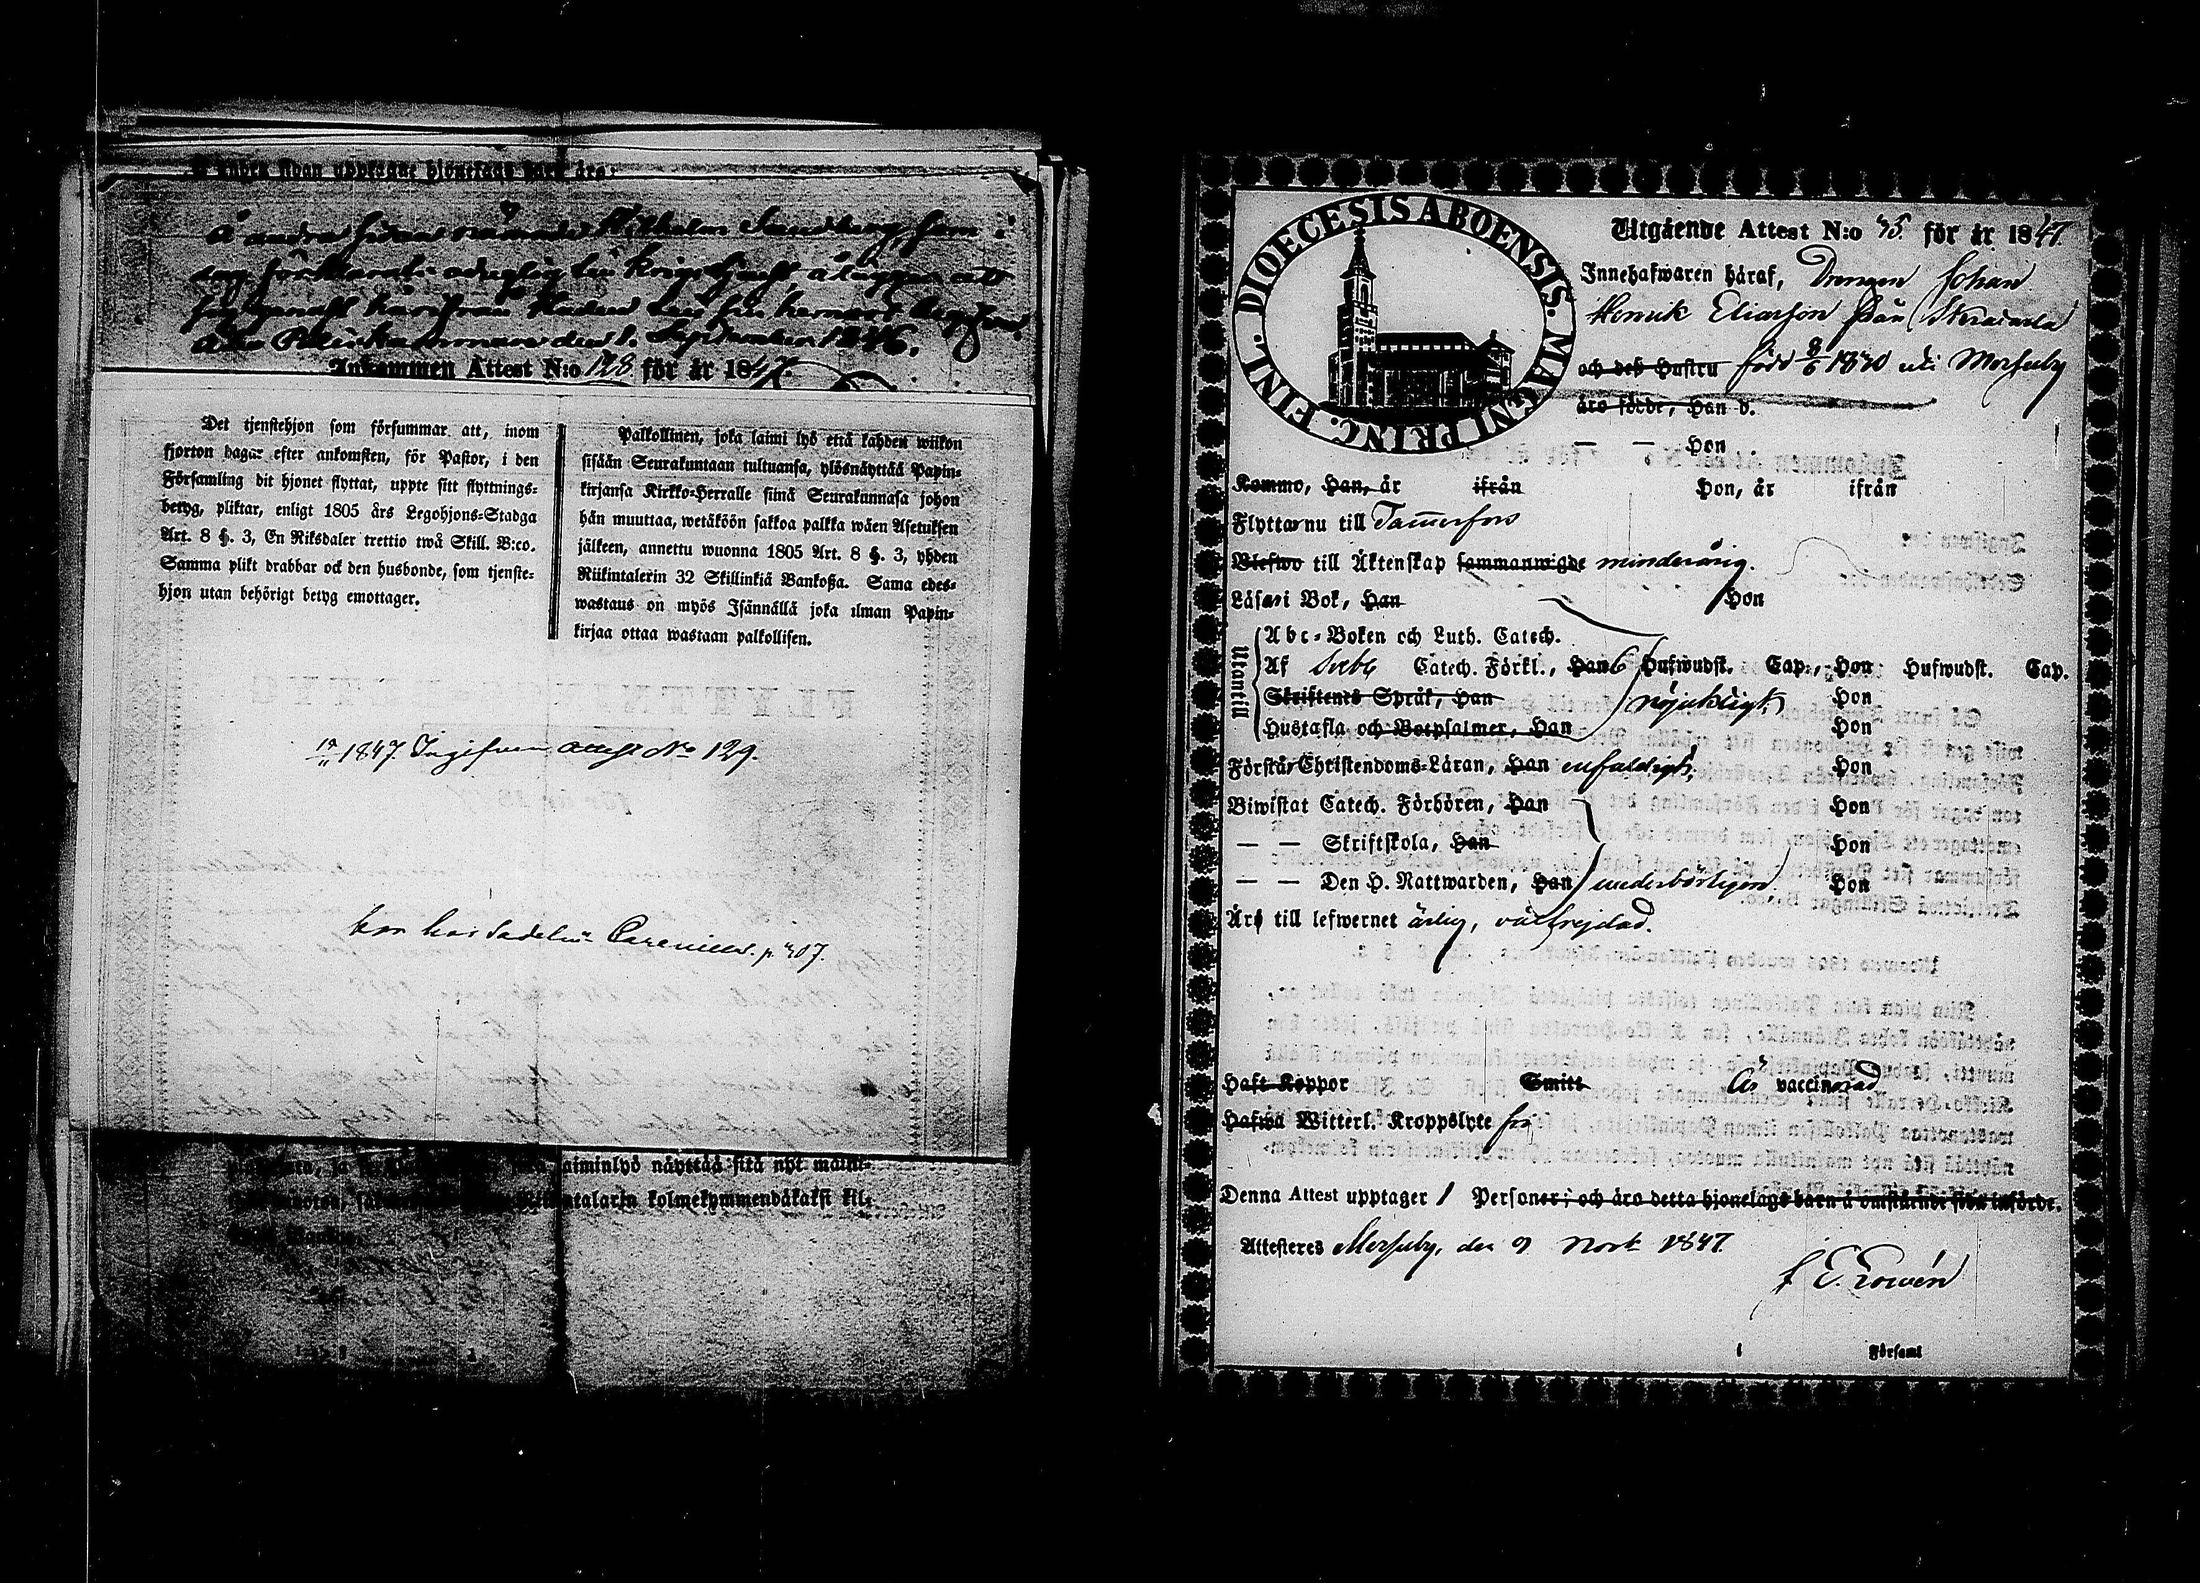 å andra sidan upptagne hjonelags barn äro:
å andra sidan nämnde Wilhelm Sandberg, som i
dag förklarats oduglig till krigstjenst, ålägges att
Åbo Poliskammare den 1. September 1846.
Inkommen Attest N:o 128 för år 1847.
Det tjenstehjon som försummar att, inom
fjorton dagar efter ankomsten, för Pastor, i den
Församling dit hjonet flyttat, uppte sitt flyttnings=
betyg, pliktar, enligt 1805 års Legohjons=Stadga
Art. 8 §. 3, En Riksdaler trettio twå Skill. B:co.
Samma plikt drabbar ock den husbonde, som tjenste=
hjon utan behörigt betyg emottager.
Palkollinen, joka laimi lyö että kahden wiikon
sisään Seurakuntaan tultuansa, ylösnäyttää Papin=
kirjansa Kirkko=Herralle siinä Seurakunnasa johon
hän muuttaa, wetäköön sakkoa palkka wäen Asetuksen
jälkeen, annettu wuonna 1805 Art. 8 §. 3, yhden
Riikintalerin 32 Skillinkiä Bankoßa. Sama edes=
wastaus on myös Isännällä joka ilman Papin=
kirjaa ottaa wastaan palkollisen.
1847. Ingifven attest No 129.
hos Sadelm. Carenius. p. 307.
laiminlyö näyttää sitä nyt mainit=
talarin kolmekymmendäkaksi kil=
DIOECESIS ABOENSIS. MAGNI PRINC. FINL.
Utgående Attest N:o 45. för år 1847.
Innehafwaren häraf, Drengen Johan
Henrik Eliasson från
och deß Hustru född 8/6 1830 uti Morfuby
äro födde, Han d.
— — Hon
Kommo, Han, år ifrån Hon, år ifrån
Flyttar nu till Tammerfors
Blefwo till Äktenskap sammanwigde minderårig.
Läsa i Bok, Han Hon
Utantill
Abc=Boken och Luth. Catech.
Af Svebe Catech. Förkl., Han 6 Hufwudst. Cap., Hon Hufwudst. Cap.
Skriftenes Språk, Han nöjaktigt, Hon
Hustafla och Botpsalmer, Han Hon
Förstår Christendoms=Läran, Han enfaldigt, Hon
Biwistat Catech. Förhören, Han Hon
— — Skriftskola, Han Hon
— — Den H. Nattwarden, Han vederbörligen. Hon
Är till lefwernet ärlig, välfrejdad.
Haft Koppor Smitt Är vaccinerad
Hafwa Witterl. Kroppslyte fri
Denna Attest upptager 1 Personer; och äro detta hjonelags barn å omstående sida införde.
Attesteres Morfuby, den 9 Nov. 1847.
Församl